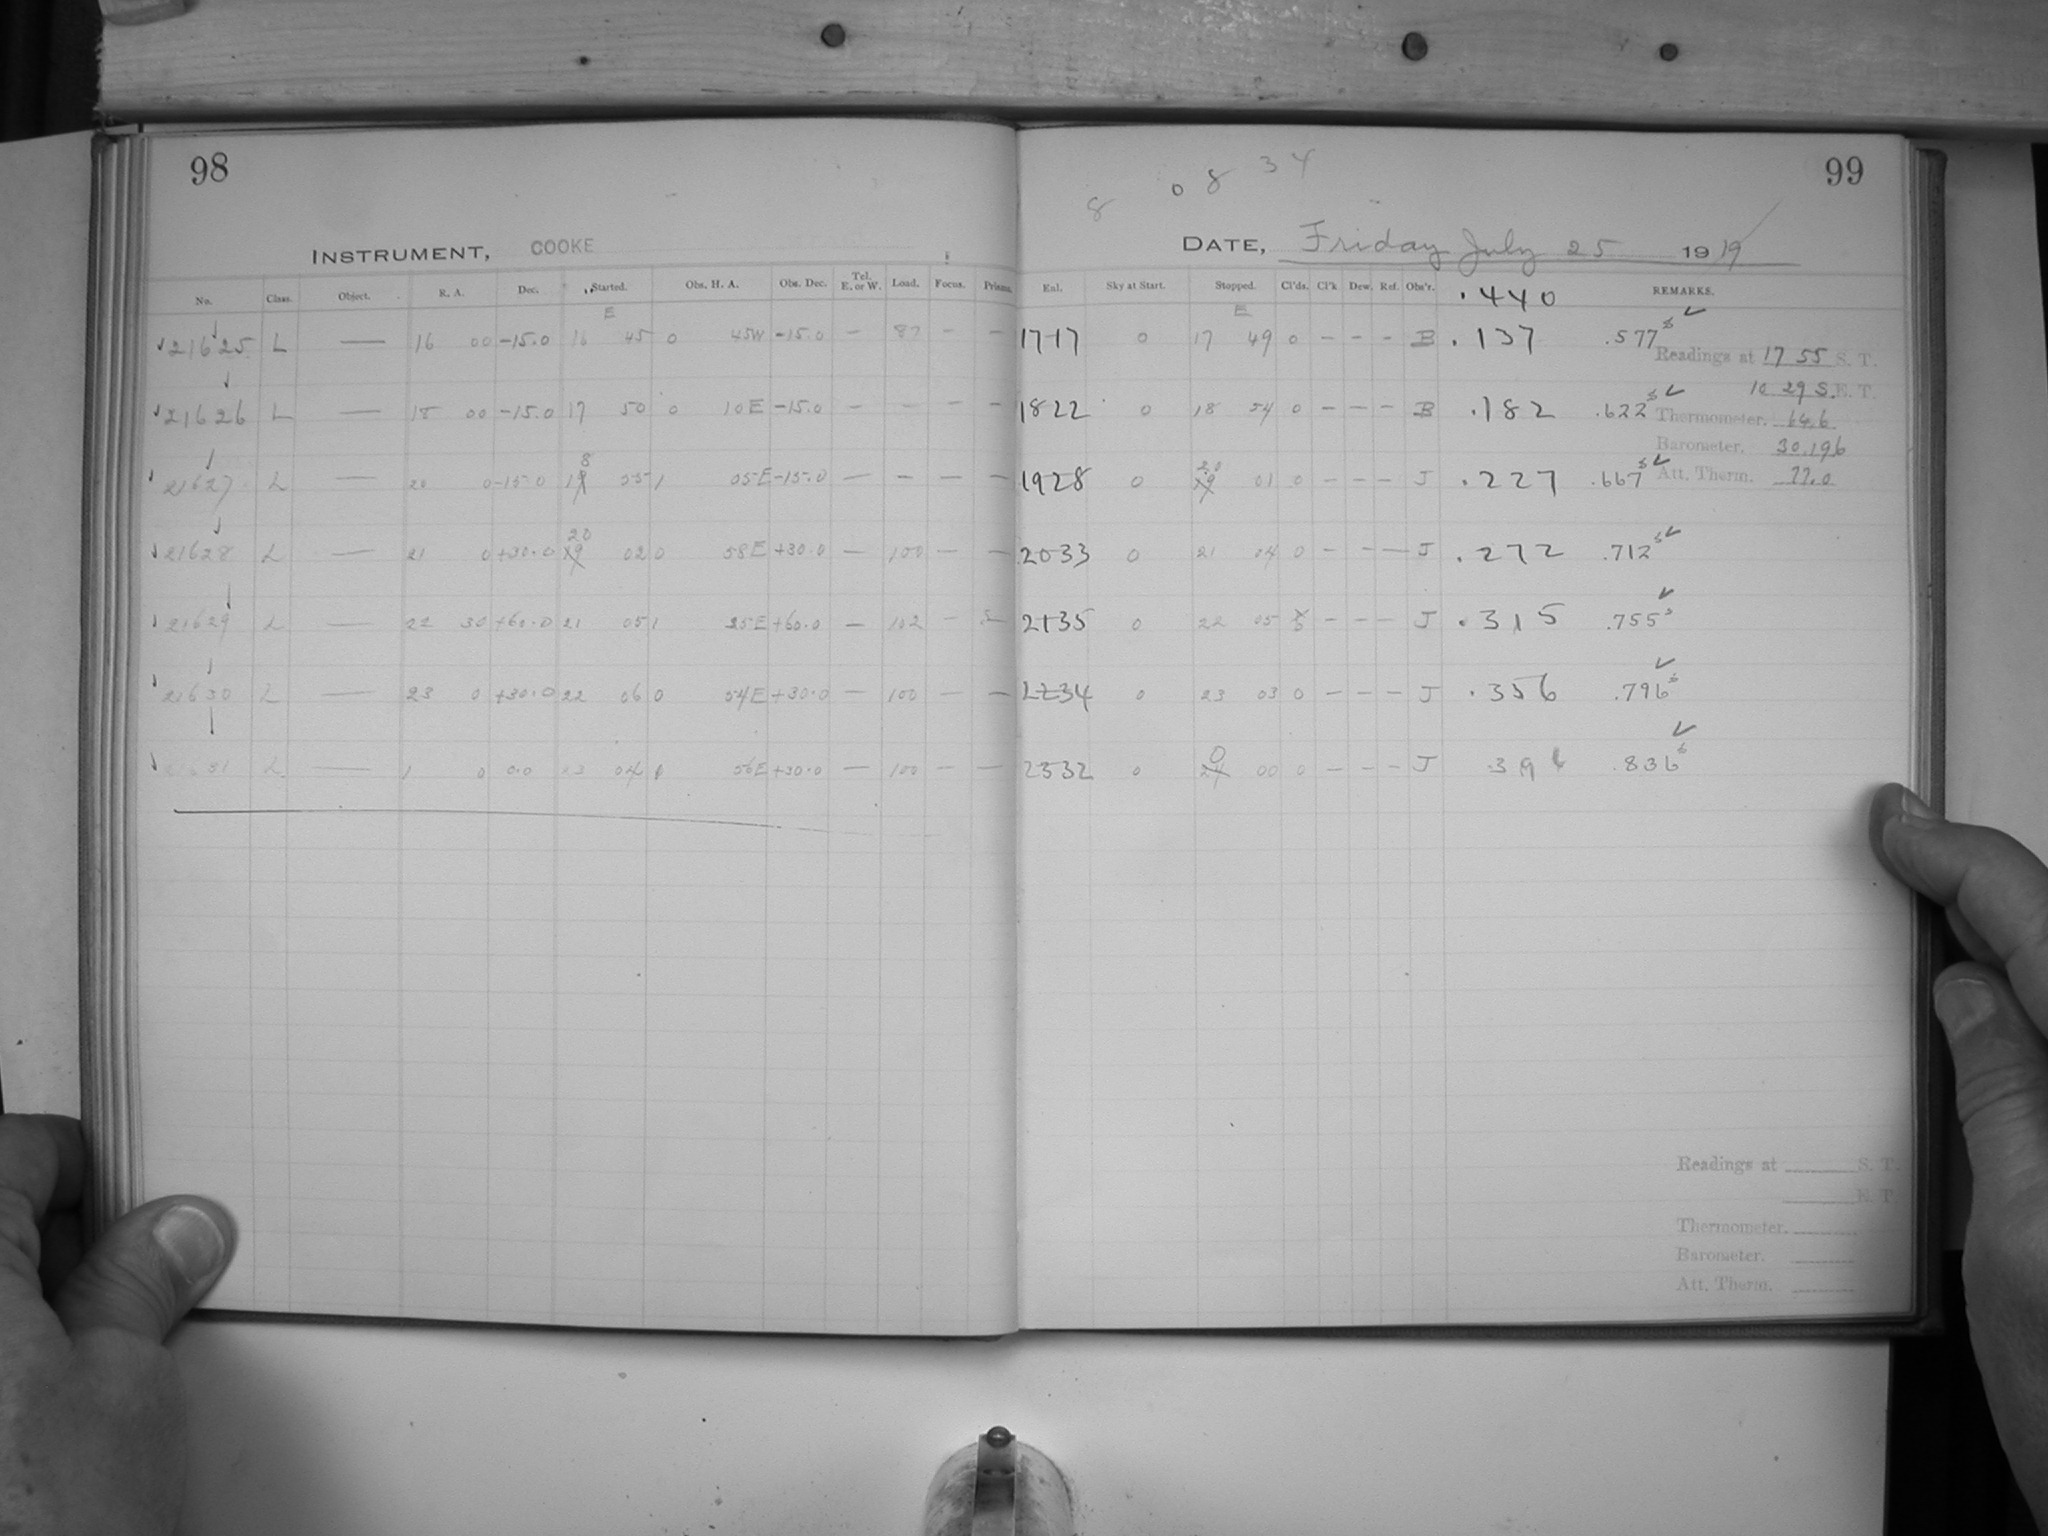 98
INSTRUMENT, COOKE
No. Class. Object. R. A. Dec. Started. Obs. H. A. Obs. Dec. Tel. E. or W. Load. Focus. Prisms.
E
21625 L — 16 00 -15.0 16 45 0 45W -15.0 — 87 — —
21626 L — 18 00 -15.0 17 50 0 10E -15.0 — — — —
8
21627 L — 20 0 -15.0 19 05 1 05E -15.0 — — — —
20
21628 L — 21 0 +30.0 19 02 0 58E +30.0 — 100 — —
21629 L — 22 30 +60.0 21 05 1 25E +60.0 — 102 —
21630 L — 23 0 +30.0 22 06 0 54E +30.0 — 100 — —
21631 L — 1 0 0.0 23 04 56E +30.0 — 100 — —
99
8 08 34
DATE, Friday July 25 1919
Enl. Sky at Start. Stopped. Cl'ds. Cl'k Dew. Ref. Obs'r. REMARKS.
.440
E
1717 0 17 49 0 - - - B .137 .577
Readings at 17 55 S. T.
10 29 S.E. T.
1822 0 18 54 0 - - - B .182 .622
Thermometer. 64.6
Barometer. 30.196
20
1928 0 19 01 0 - - - J .227 .667
Att. Therm. 77.0
2033 0 21 04 0 - - — J .272 .712
2135 0 22 05 - - - J .315 .755
2234 0 23 03 0 - - - J .356 .796
0
2332 0 24 00 0 - - - J .396 .836
Readings at S. T.
E. T.
Thermometer.
Barometer.
Att. Therm.